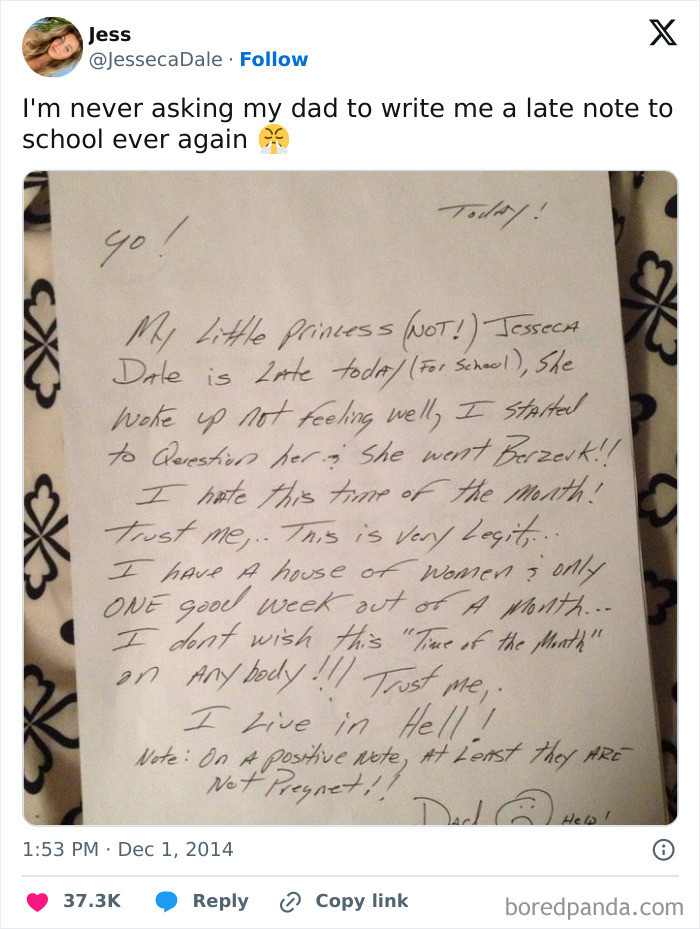 Jess
@JessecaDale · Follow
I'm never asking my dad to write me a late note to
school ever again 😤
Today!
yo!
My Little princess (NOT!) Jesseca
Dale is Late today (For School), She
woke up not feeling well, I started
to Question her & She went Berzerk!!
I hate this time of the month!
Trust me,.. This is very Legit,...
I have A house of women & only
ONE good week out of A month...
I dont wish this "Time of the Month"
on Anybody!!! Trust me,.
I Live in Hell!
Note: On A positive Note, At Least they ARE
Not Pregnet,!!
Dad Help!
1:53 PM · Dec 1, 2014
37.3K Reply Copy link
boredpanda.com